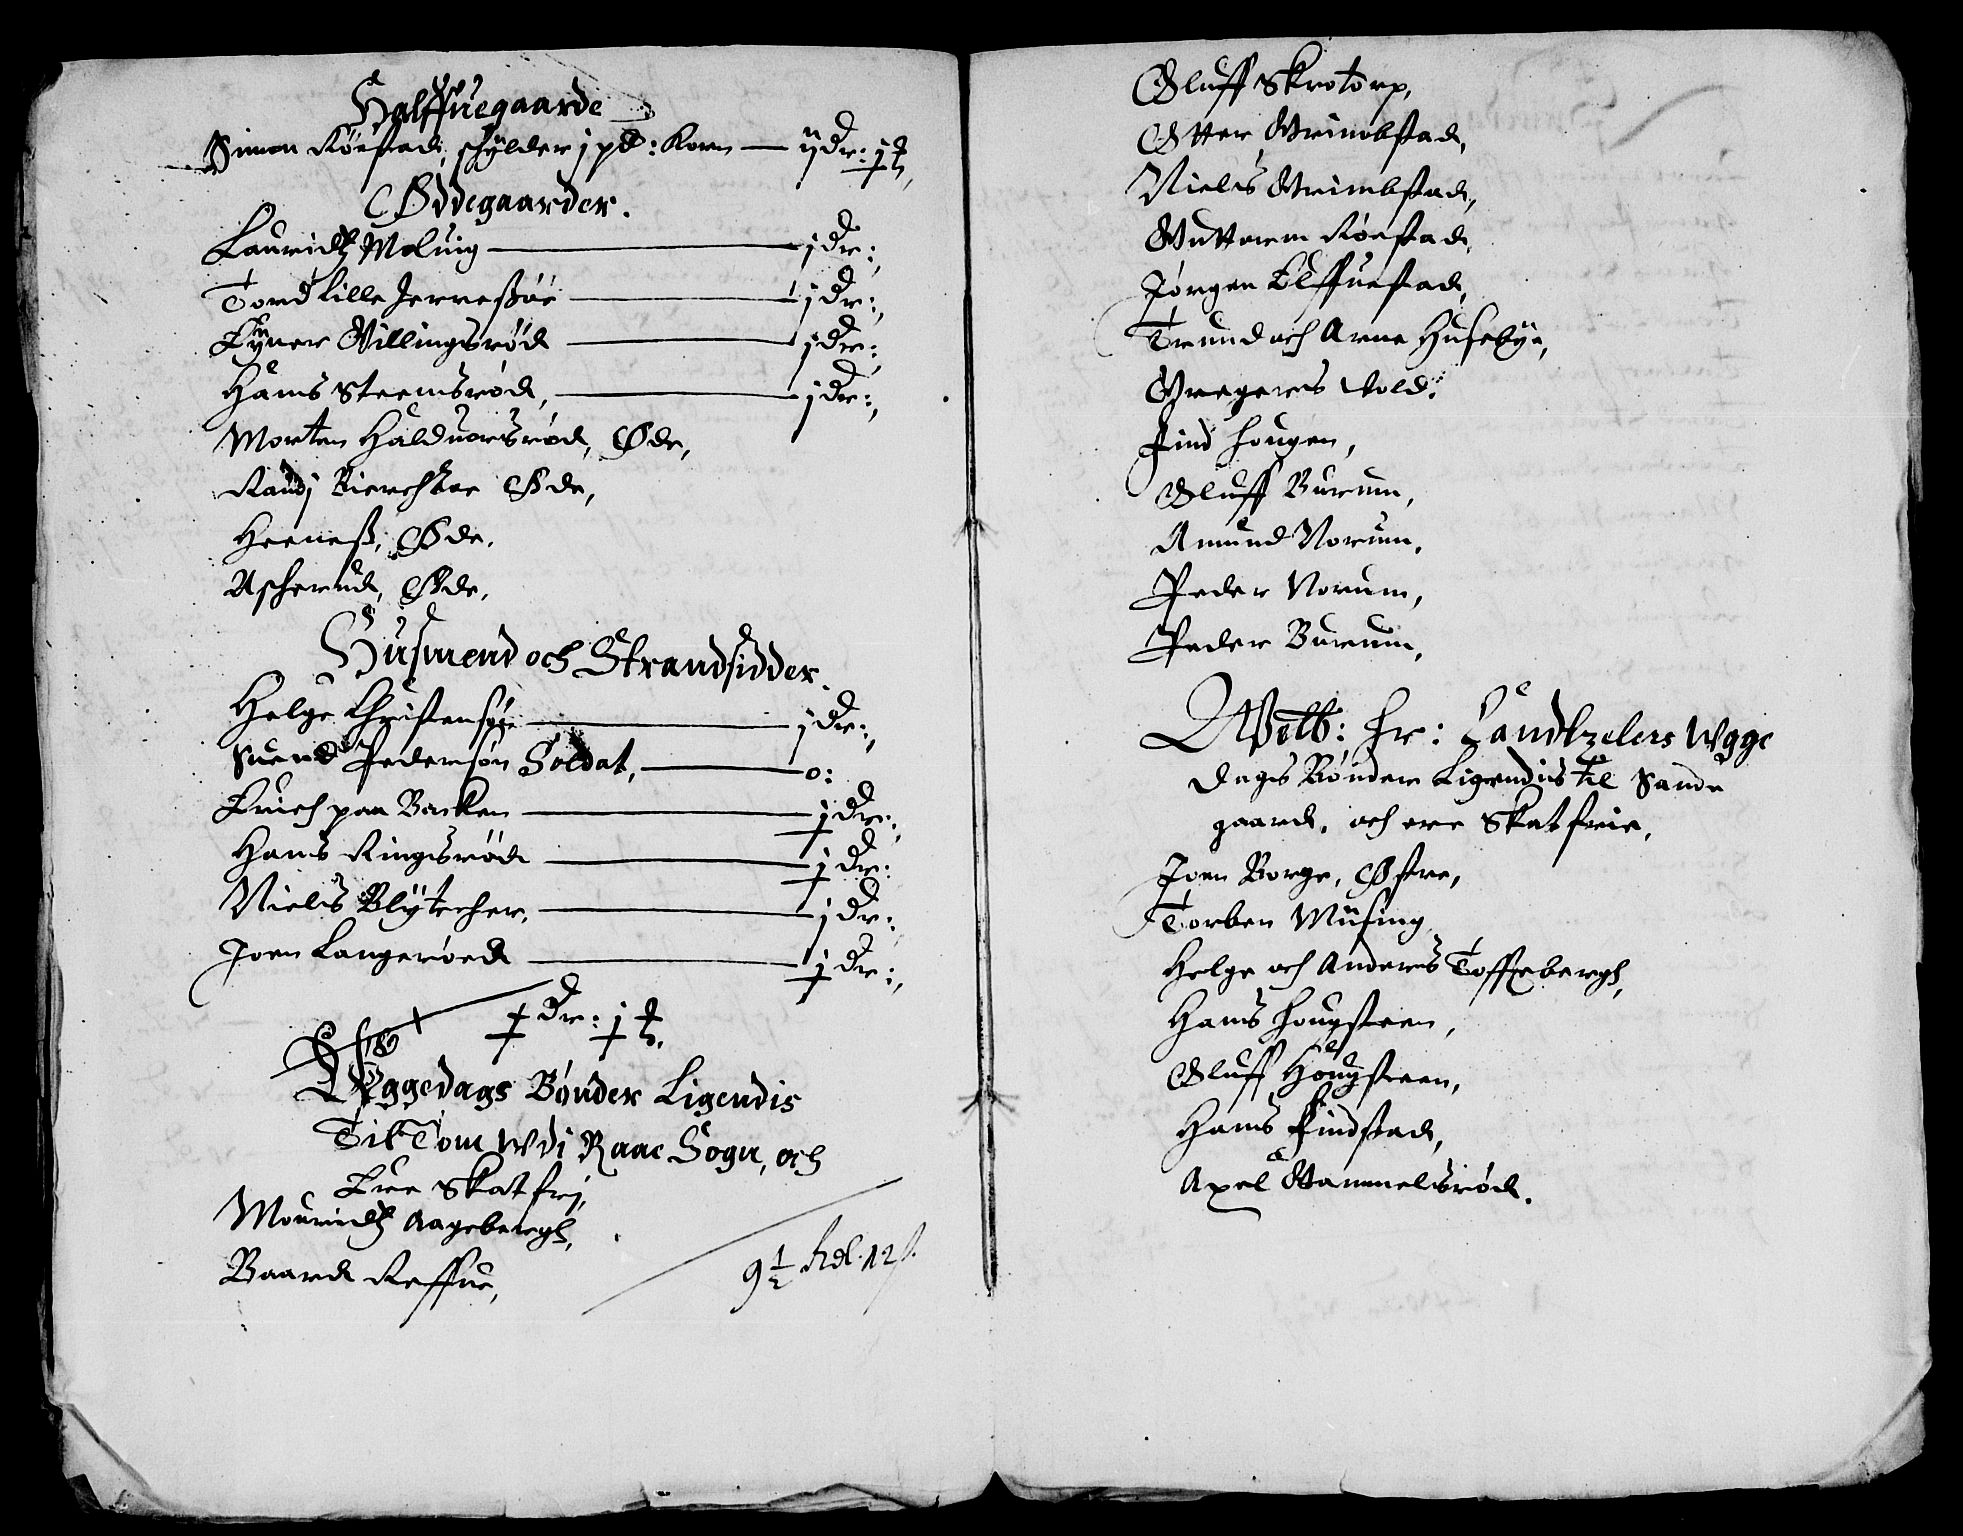 Halffuegaarde
Simon Röestad, schylder j pd: Korn — ij dr: j ₶
Øddegaarder.
Lauridtz Moluig — j dr:,
Tord Lille Jerresöe — j dr:,
Eyner Villingsröd — j dr:,
Hans Steensröd, — j dr:,
Morten Halduorsröd, Øde,
Randj Bierchöe Øde,
Heeneß, Øde,
Ascherud, Øde,
Husmend och Strandsidder.
Helge Christensøn — j dr:,
Suend Pedersøn Soldat, — 0:
Erich paa Backen — j dr:,
Hans Ringsröd — j dr:
Niels Blÿtecher, — j dr:
Joen Langeröed — j dr:,
dr: j
Wggedags Bønder Ligendis
Til Tom wdj Raae Sogn, och
Ere Skatfrj,
Mouridtz Aagebergh,
Baard Reffue,
9½ Rdl. 12 ß.
Oluff Skrotorp,
Otter Grimbstad,
Niels Grimbstad,
Guttorm Röestad,
Jørgen Elffuestad,
Trund och Arne Husebye,
Gregers Vold:
Find Hougen,
Oluff Burum,
Amund Norum,
Peder Norum,
Peder Burum,
Welb: Hr: Candtzelers Wgge
dags Bønder Ligendis til Sande
gaard, och ere Skatfrie,
Joen Borge, Østre,
Torben Müsing,
Helge och Anders Toffteberg,
Hans Hougsteen,
Oluff Hougsteen,
Hans Findstad,
Axel Gammelsröd.